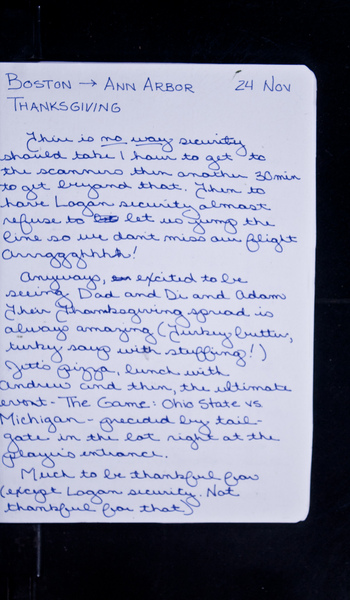 BOSTON → ANN ARBOR 24 NOV
THANKSGIVING
There is no way security
should take 1 hour to get to
the scanners then another 30 min
to get beyond that. Then to
have Logan security almost
refuse to let us jump the
line so we don't miss our flight
Arrrggghhhh!
Anyways, excited to be
seeing Dad and Di and Adam
Their Thanksgiving spread is
always amazing (Turkey butter,
turkey soup with stuffing!)
Jetts pizza, lunch with
Andrew and then, the ultimate
event - The Game: Ohio State vs
Michigan - preceded by tail-
gate in the lot right at the
player's entrance.
Much to be thankful for
(except Logan security. Not
thankful for that)